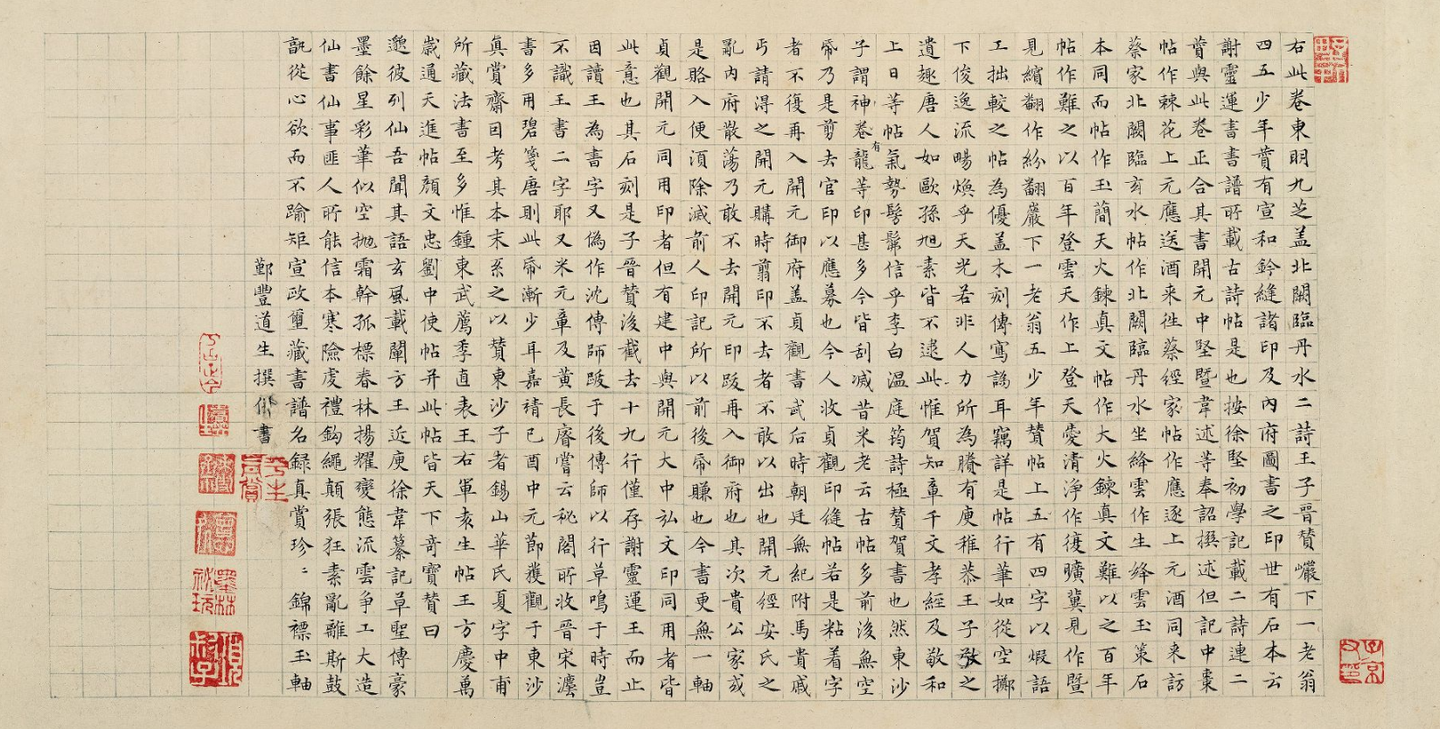 右此卷東明九芝盖北闕臨丹水二詩王子晉賛巗下一老翁
四五少年賛有宣和鈐縫諸印及內府圖書之印世有石本云
謝靈運書書譜所載古詩帖是也按徐堅初學記載二詩連二
賛與此卷正合其書開元中堅暨韋述等奉詔撰述但記中棗
帖作棘花上元應送酒来徃蔡經家帖作應逐上元酒同来訪
蔡家北闕臨玄水帖作北闕臨丹水坐絳雲作生絳雲玉䇿石
本同而帖作玉簡天火鍊真文帖作大火鍊真文難以之百年
帖作難之以百年登雲天作上登天愛清浄作復曠冀見作暨
見縮翻作紛翻巖下一老翁五少年賛帖上五有四字以煆語
工拙較之帖為優盖木刻傳寫譌耳竊詳是帖行筆如從空擲
下俊逸流暢煥乎天光若非人力所為賸有庾稚恭王子敬之
遺趣唐人如歐孫旭素皆不逮此惟賀知章千文孝經及敬和
上日等帖氣勢髣髴信乎李白温庭筠詩極賛賀書也然東沙
子謂神卷有龍等印甚多今皆刮滅昔米老云古帖多前後無空
帋乃是剪去官印以應募也今人收貞觀印縫帖若是粘着字
者不復再入開元御府盖貞觀書武后時朝廷無紀附馬貴戚
丐請得之開元購時剪印不去者不敢以出也開元經安氏之
亂內府散蕩乃敢不去開元印跋再入御府也其次貴公家或
是賂入便湏除滅前人印記所以前後帋賺也今書更無一軸
貞觀開元同用印者但有建中與開元大中弘文印同用者皆
此意也其石刻是子晉賛後截去十九行僅存謝靈運王而止
因讀王為書字又偽作沈傳師跋于後傳師以行草鳴于時豈
不識王書二字耶又米元章及黃長睿嘗云秘閣所收晉宋灋
書多用碧箋唐則此帋漸少耳嘉靖己酉中元節獲觀于東沙
真賞齋因考其本末系之以賛東沙子者錫山華氏夏字中甫
所藏法書至多惟鍾東武薦季直表王右軍袁生帖王方慶萬
歲通天進帖顏文忠劉中使帖并此帖皆天下竒寶賛曰
邈彼列仙吾聞其語玄風載闡方王近庾徐韋纂記草聖傳豪
墨餘星彩筆似空抛霜幹孤標春林揚耀變態流雲争工大造
仙書仙事匪人所能信本寒險虔禮鈎繩顛張狂素亂離斯鼓
孰從心欲而不踰矩宣政璽藏書譜名録真賞珍〻錦褾玉軸
鄞豐道生撰併書
子京父印
墨林祕玩